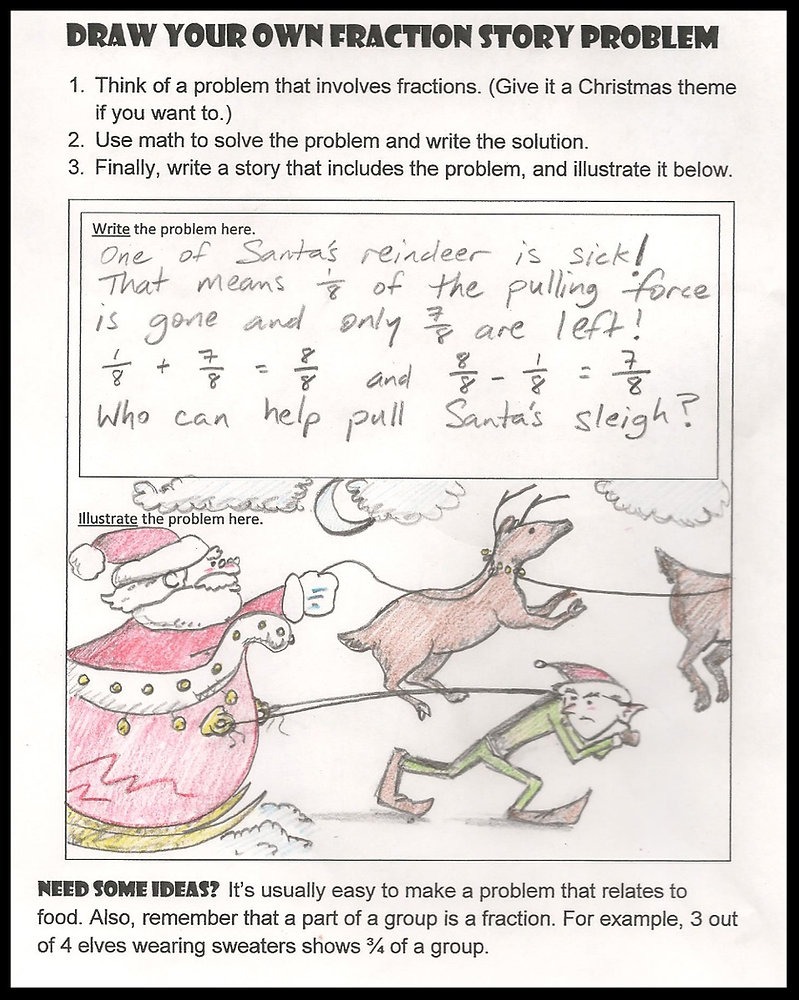 DRAW YOUR OWN FRACTION STORY PROBLEM
1. Think of a problem that involves fractions. (Give it a Christmas theme
if you want to.)
2. Use math to solve the problem and write the solution.
3. Finally, write a story that includes the problem, and illustrate it below.
Write the problem here.
One of Santa's reindeer is sick!
That means 1/8 of the pulling force
is gone and only 7/8 are left!
1/8 + 7/8 = 8/8 and 8/8 - 1/8 = 7/8
Who can help pull Santa's sleigh?
Illustrate the problem here.
NEED SOME IDEAS? It's usually easy to make a problem that relates to
food. Also, remember that a part of a group is a fraction. For example, 3 out
of 4 elves wearing sweaters shows ¾ of a group.